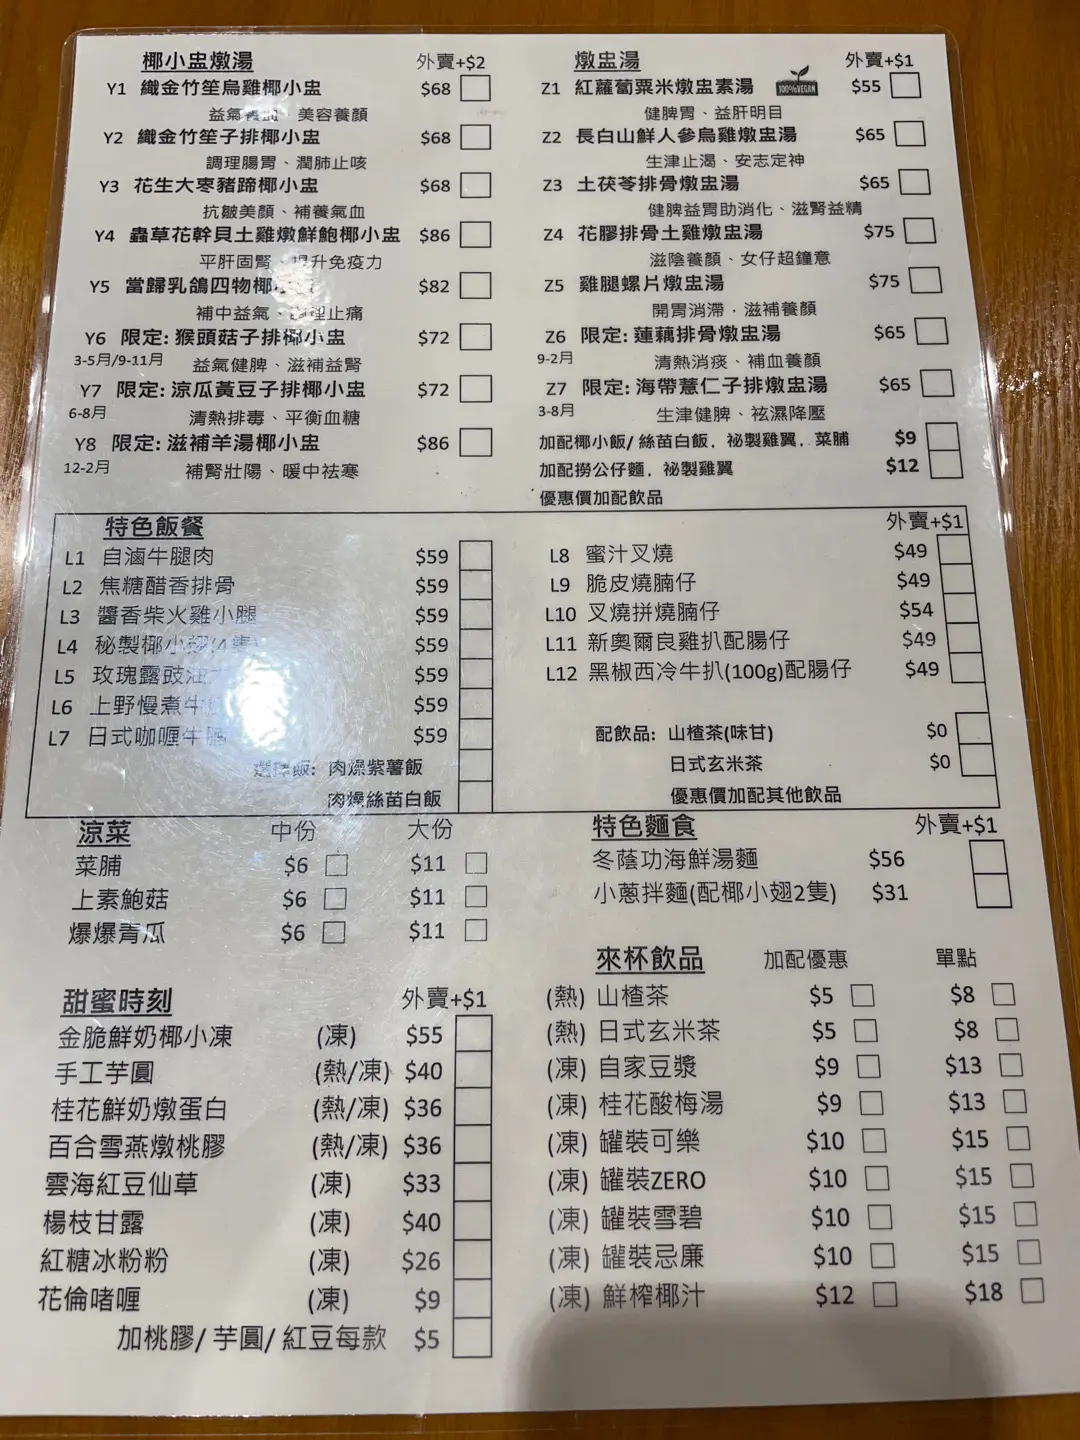 椰小盅燉湯 外賣+$2
Y1 織金竹笙烏雞椰小盅 $68
益氣 美容養顏
Y2 織金竹笙子排椰小盅 $68
調理腸胃、潤肺止咳
Y3 花生大枣豬蹄椰小盅 $68
抗皺美顏、補養氣血
Y4 蟲草花幹貝土雞燉鮮鮑椰小盅 $86
平肝固腎、提升免疫力
Y5 當歸乳鴿四物椰 $82
補中益氣、調理止痛
Y6 限定: 猴頭菇子排椰小盅 $72
3-5月/9-11月 益氣健脾、滋補益腎
Y7 限定: 涼瓜黃豆子排椰小盅 $72
6-8月 清熱排毒、平衡血糖
Y8 限定: 滋補羊湯椰小盅 $86
12-2月 補腎壯陽、暖中祛寒
燉盅湯 外賣+$1
Z1 紅蘿蔔粟米燉盅素湯 100%VEGAN $55
健脾胃、益肝明目
Z2 長白山鮮人參烏雞燉盅湯 $65
生津止渴、安志定神
Z3 土茯苓排骨燉盅湯 $65
健脾益胃助消化、滋腎益精
Z4 花膠排骨土雞燉盅湯 $75
滋陰養顏、女仔超鐘意
Z5 雞腿螺片燉盅湯 $75
開胃消滯﹑滋補養顏
Z6 限定: 蓮藕排骨燉盅湯 $65
9-2月 清熱消痰、補血養顏
Z7 限定: 海帶薏仁子排燉盅湯 $65
3-8月 生津健脾、袪濕降壓
加配椰小飯/ 絲苗白飯﹐祕製雞翼﹐菜脯 $9
加配撈公仔麵﹐祕製雞翼 $12
優惠價加配飲品
特色飯餐
L1 自滷牛腿肉 $59
L2 焦糖醋香排骨 $59
L3 醬香柴火雞小腿 $59
L4 秘製椰小翅(4隻) $59
L5 玫瑰露豉油 $59
L6 上野慢煮牛 $59
L7 日式咖喱牛腩 $59
選擇飯: 肉燥紫薯飯
肉燥絲苗白飯
外賣+$1
L8 蜜汁叉燒 $49
L9 脆皮燒腩仔 $49
L10 叉燒拼燒腩仔 $54
L11 新奧爾良雞扒配腸仔 $49
L12 黑椒西冷牛扒(100g)配腸仔 $49
配飲品: 山楂茶(味甘) $0
日式玄米茶 $0
優惠價加配其他飲品
涼菜 中份 大份
菜脯 $6 $11
上素鮑菇 $6 $11
爆爆青瓜 $6 $11
特色麵食 外賣+$1
冬蔭功海鮮湯麵 $56
小蔥拌麵(配椰小翅2隻) $31
甜蜜時刻 外賣+$1
金脆鮮奶椰小凍 (凍) $55
手工芋圓 (熱/凍) $40
桂花鮮奶燉蛋白 (熱/凍) $36
百合雪燕燉桃膠 (熱/凍) $36
雲海紅豆仙草 (凍) $33
楊枝甘露 (凍) $40
紅糖冰粉粉 (凍) $26
花倫啫喱 (凍) $9
加桃膠/ 芋圓/ 紅豆每款 $5
來杯飲品 加配優惠 單點
(熱) 山楂茶 $5 $8
(熱) 日式玄米茶 $5 $8
(凍) 自家豆漿 $9 $13
(凍) 桂花酸梅湯 $9 $13
(凍) 罐裝可樂 $10 $15
(凍) 罐裝ZERO $10 $15
(凍) 罐裝雪碧 $10 $15
(凍) 罐裝忌廉 $10 $15
(凍) 鮮榨椰汁 $12 $18